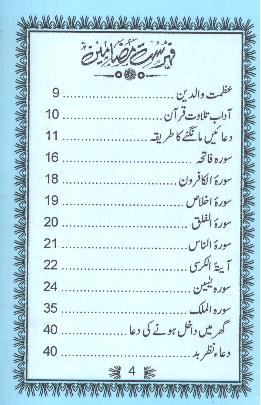 فہرست مضامین
عظمت والدین 9
آداب تلاوت قرآن 10
دعائیں مانگنے کا طریقہ 11
سورہ فاتحہ 16
سورۃ الکافرون 18
سورۃ اخلاص 19
سورۃ الفلق 20
سورۃ الناس 21
آیۃ الکرسی 22
سورہ یٰسین 24
سورۃ الملک 35
گھر میں داخل ہونے کی دعا 40
دعاء نظر بد 40
4